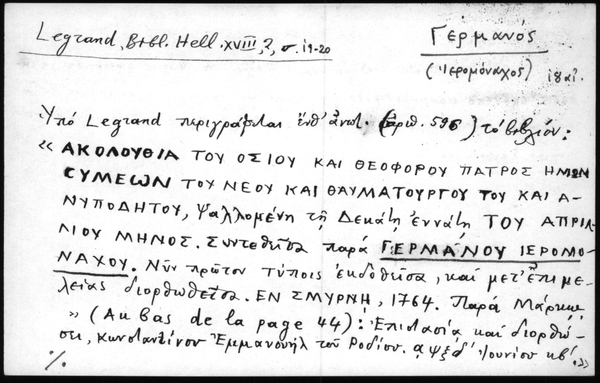 Legrand, Bibl. Hell. XVIII, 2, σ. 19-20
Γερμανός
(ἱερομόναχος) ιη αἰ.
Ὑπό Legrand περιγράφεται ἐνθ' ἀνωτ. (ἀριθ. 596) τό βιβλίον:
« ΑΚΟΛΟΥΘΙΑ ΤΟΥ ΟΣΙΟΥ ΚΑΙ ΘΕΟΦΟΡΟΥ ΠΑΤΡΟΣ ΗΜΩΝ
CΥΜΕΩΝ ΤΟΥ ΝΕΟΥ ΚΑΙ ΘΑΥΜΑΤΟΥΡΓΟΥ ΤΟΥ ΚΑΙ Α-
ΝΥΠΟΔΗΤΟΥ, ψαλλομένη τῇ Δεκάτῃ ἐννάτῃ ΤΟΥ ΑΠΡΙΛ-
ΛΙΟΥ ΜΗΝΟΣ. Συντεθεῖσα παρά ΓΕΡΜΑΝΟΥ ΙΕΡΟΜΟ-
ΝΑΧΟΥ. Νῦν πρῶτον τύποις ἐκδοθεῖσα, καί μετ' ἐπιμε-
λείας διορθωθεῖσα. ΕΝ ΣΜΥΡΝΗ, 1764. Παρά Μάρκῳ
» (Au bas de la page 44): Ἐπιστασίᾳ καί διορθώ-
σει, Κωνσταντίνου Ἐμμανουήλ τοῦ Ροδίου. αψξδ' Ἰουνίου κβ'. »
./.